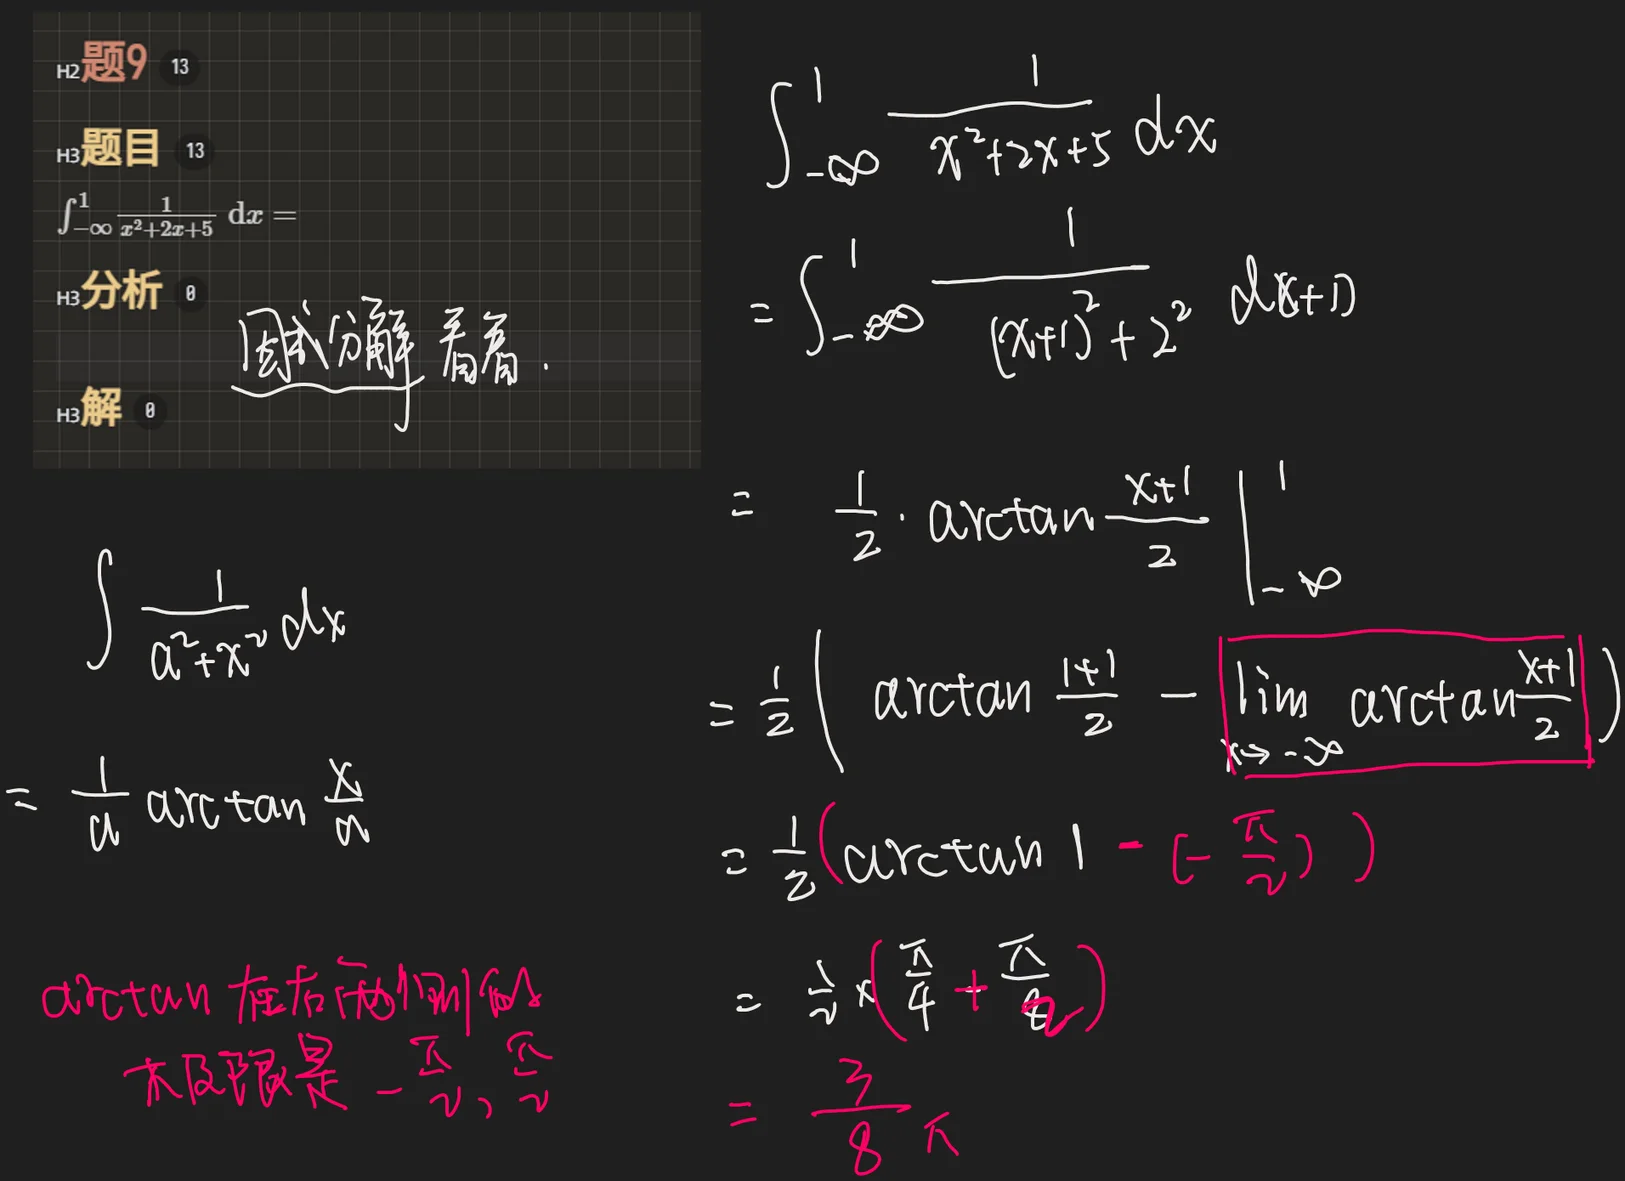 H2题9 13
H3题目 13
∫_{-∞}^{1} \frac{1}{x²+2x+5} dx =
H3分析 0
因式分解看看.
H3解 0
∫ \frac{1}{a²+x²} dx
= \frac{1}{a} arctan \frac{x}{a}
arctan 在左右两侧的
极限是 -\frac{π}{2}, \frac{π}{2}
∫_{-∞}^{1} \frac{1}{x²+2x+5} dx
= ∫_{-∞}^{1} \frac{1}{(x+1)²+2²} d(x+1)
= \frac{1}{2} · arctan \frac{x+1}{2} |_{-∞}^{1}
= \frac{1}{2} ( arctan \frac{1+1}{2} - lim_{x→-∞} arctan \frac{x+1}{2} )
= \frac{1}{2} ( arctan 1 - (-\frac{π}{2}) )
= \frac{1}{2} × ( \frac{π}{4} + \frac{π}{2} )
= \frac{3}{8} π